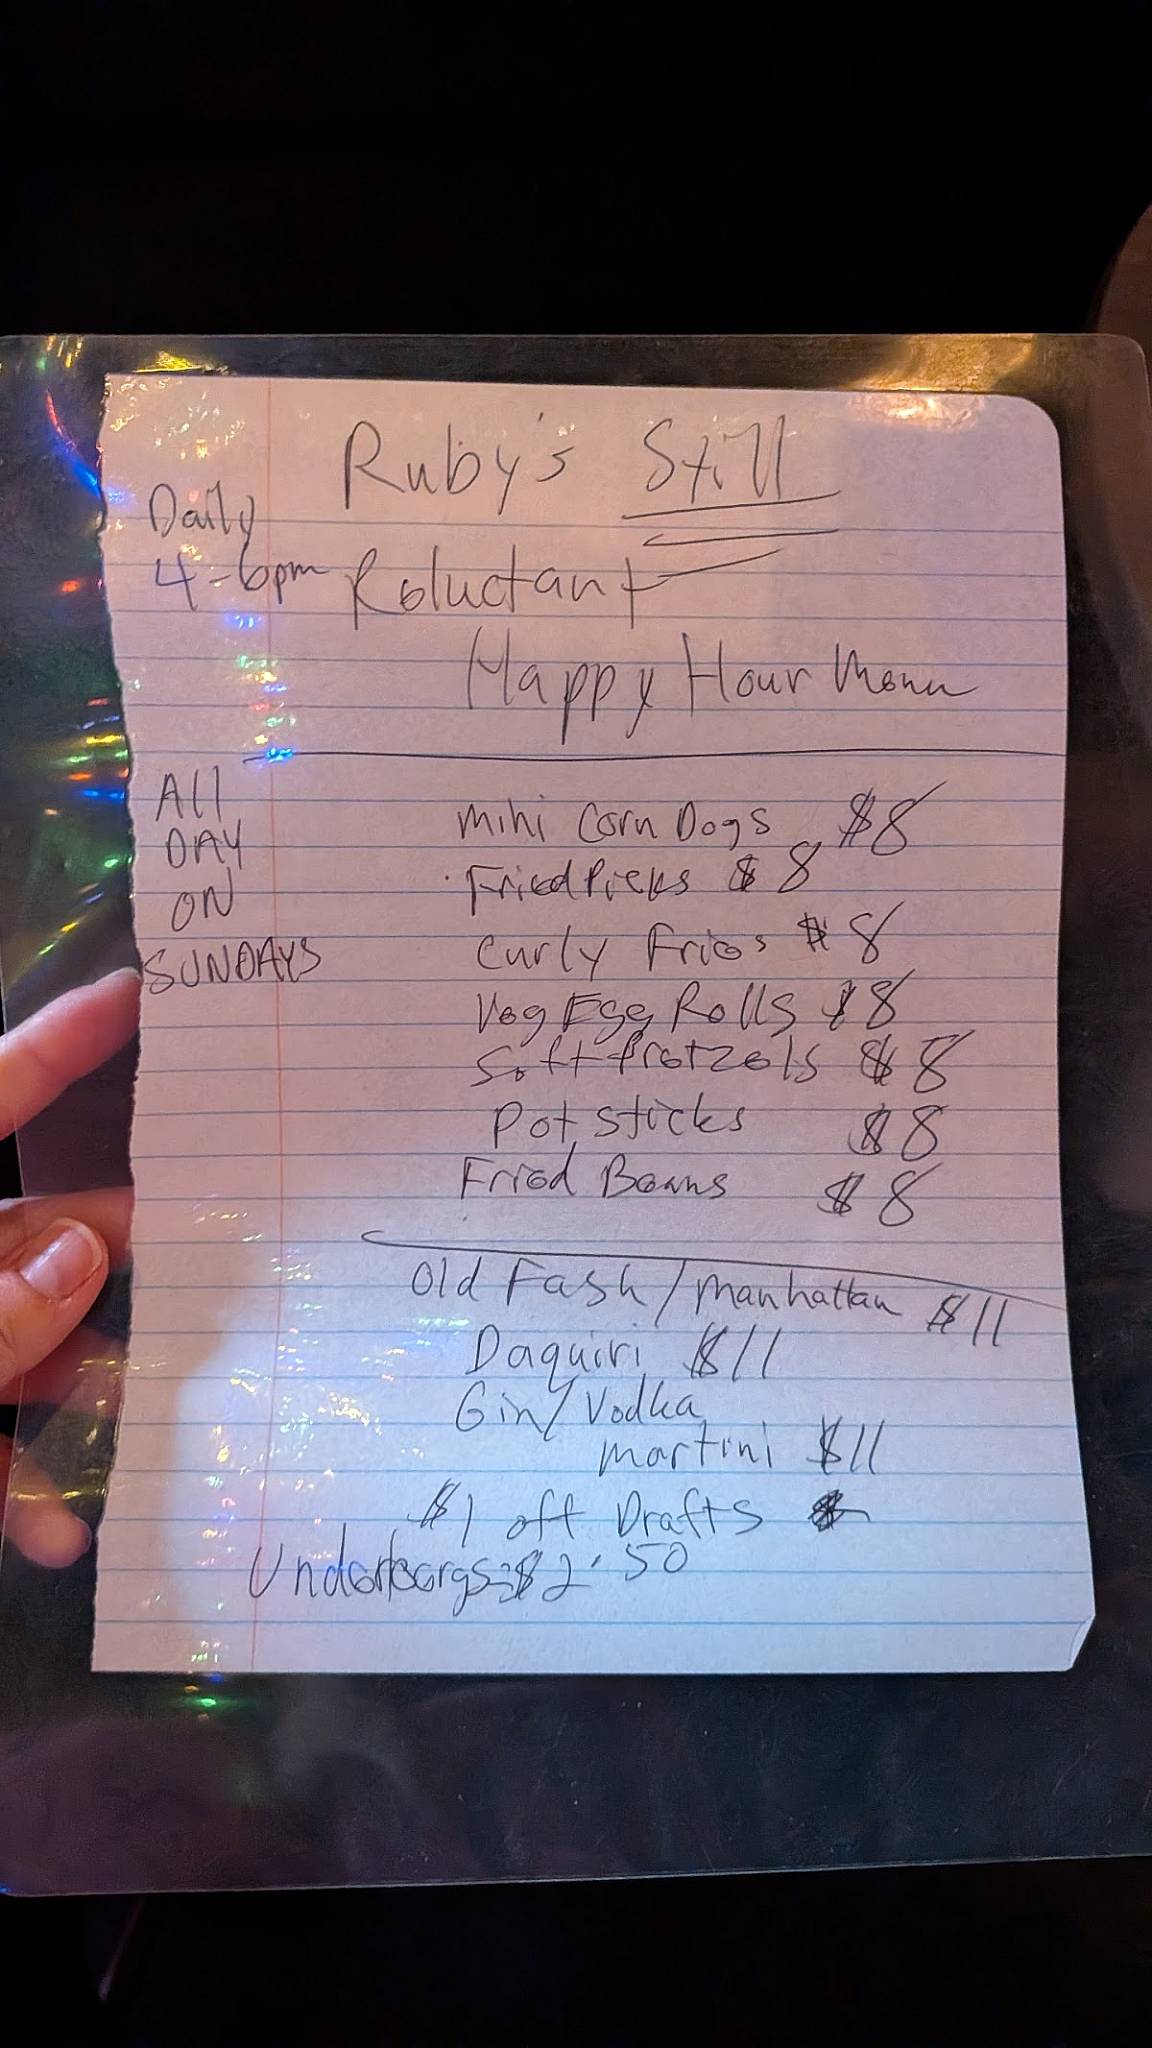 Ruby's Still
Reluctant
Happy Hour Menu
Daily
4-6pm
All
DAY
ON
SUNDAYS
Mini Corn Dogs $8
Fried Picks $8
Curly Fries $8
Veg Egg Rolls $8
Soft Pretzels $8
Pot Sticks $8
Fried Beans $8
Old Fash/Manhattan $11
Daquiri $11
Gin/Vodka
Martini $11
$1 off Drafts
Underbergs $2.50